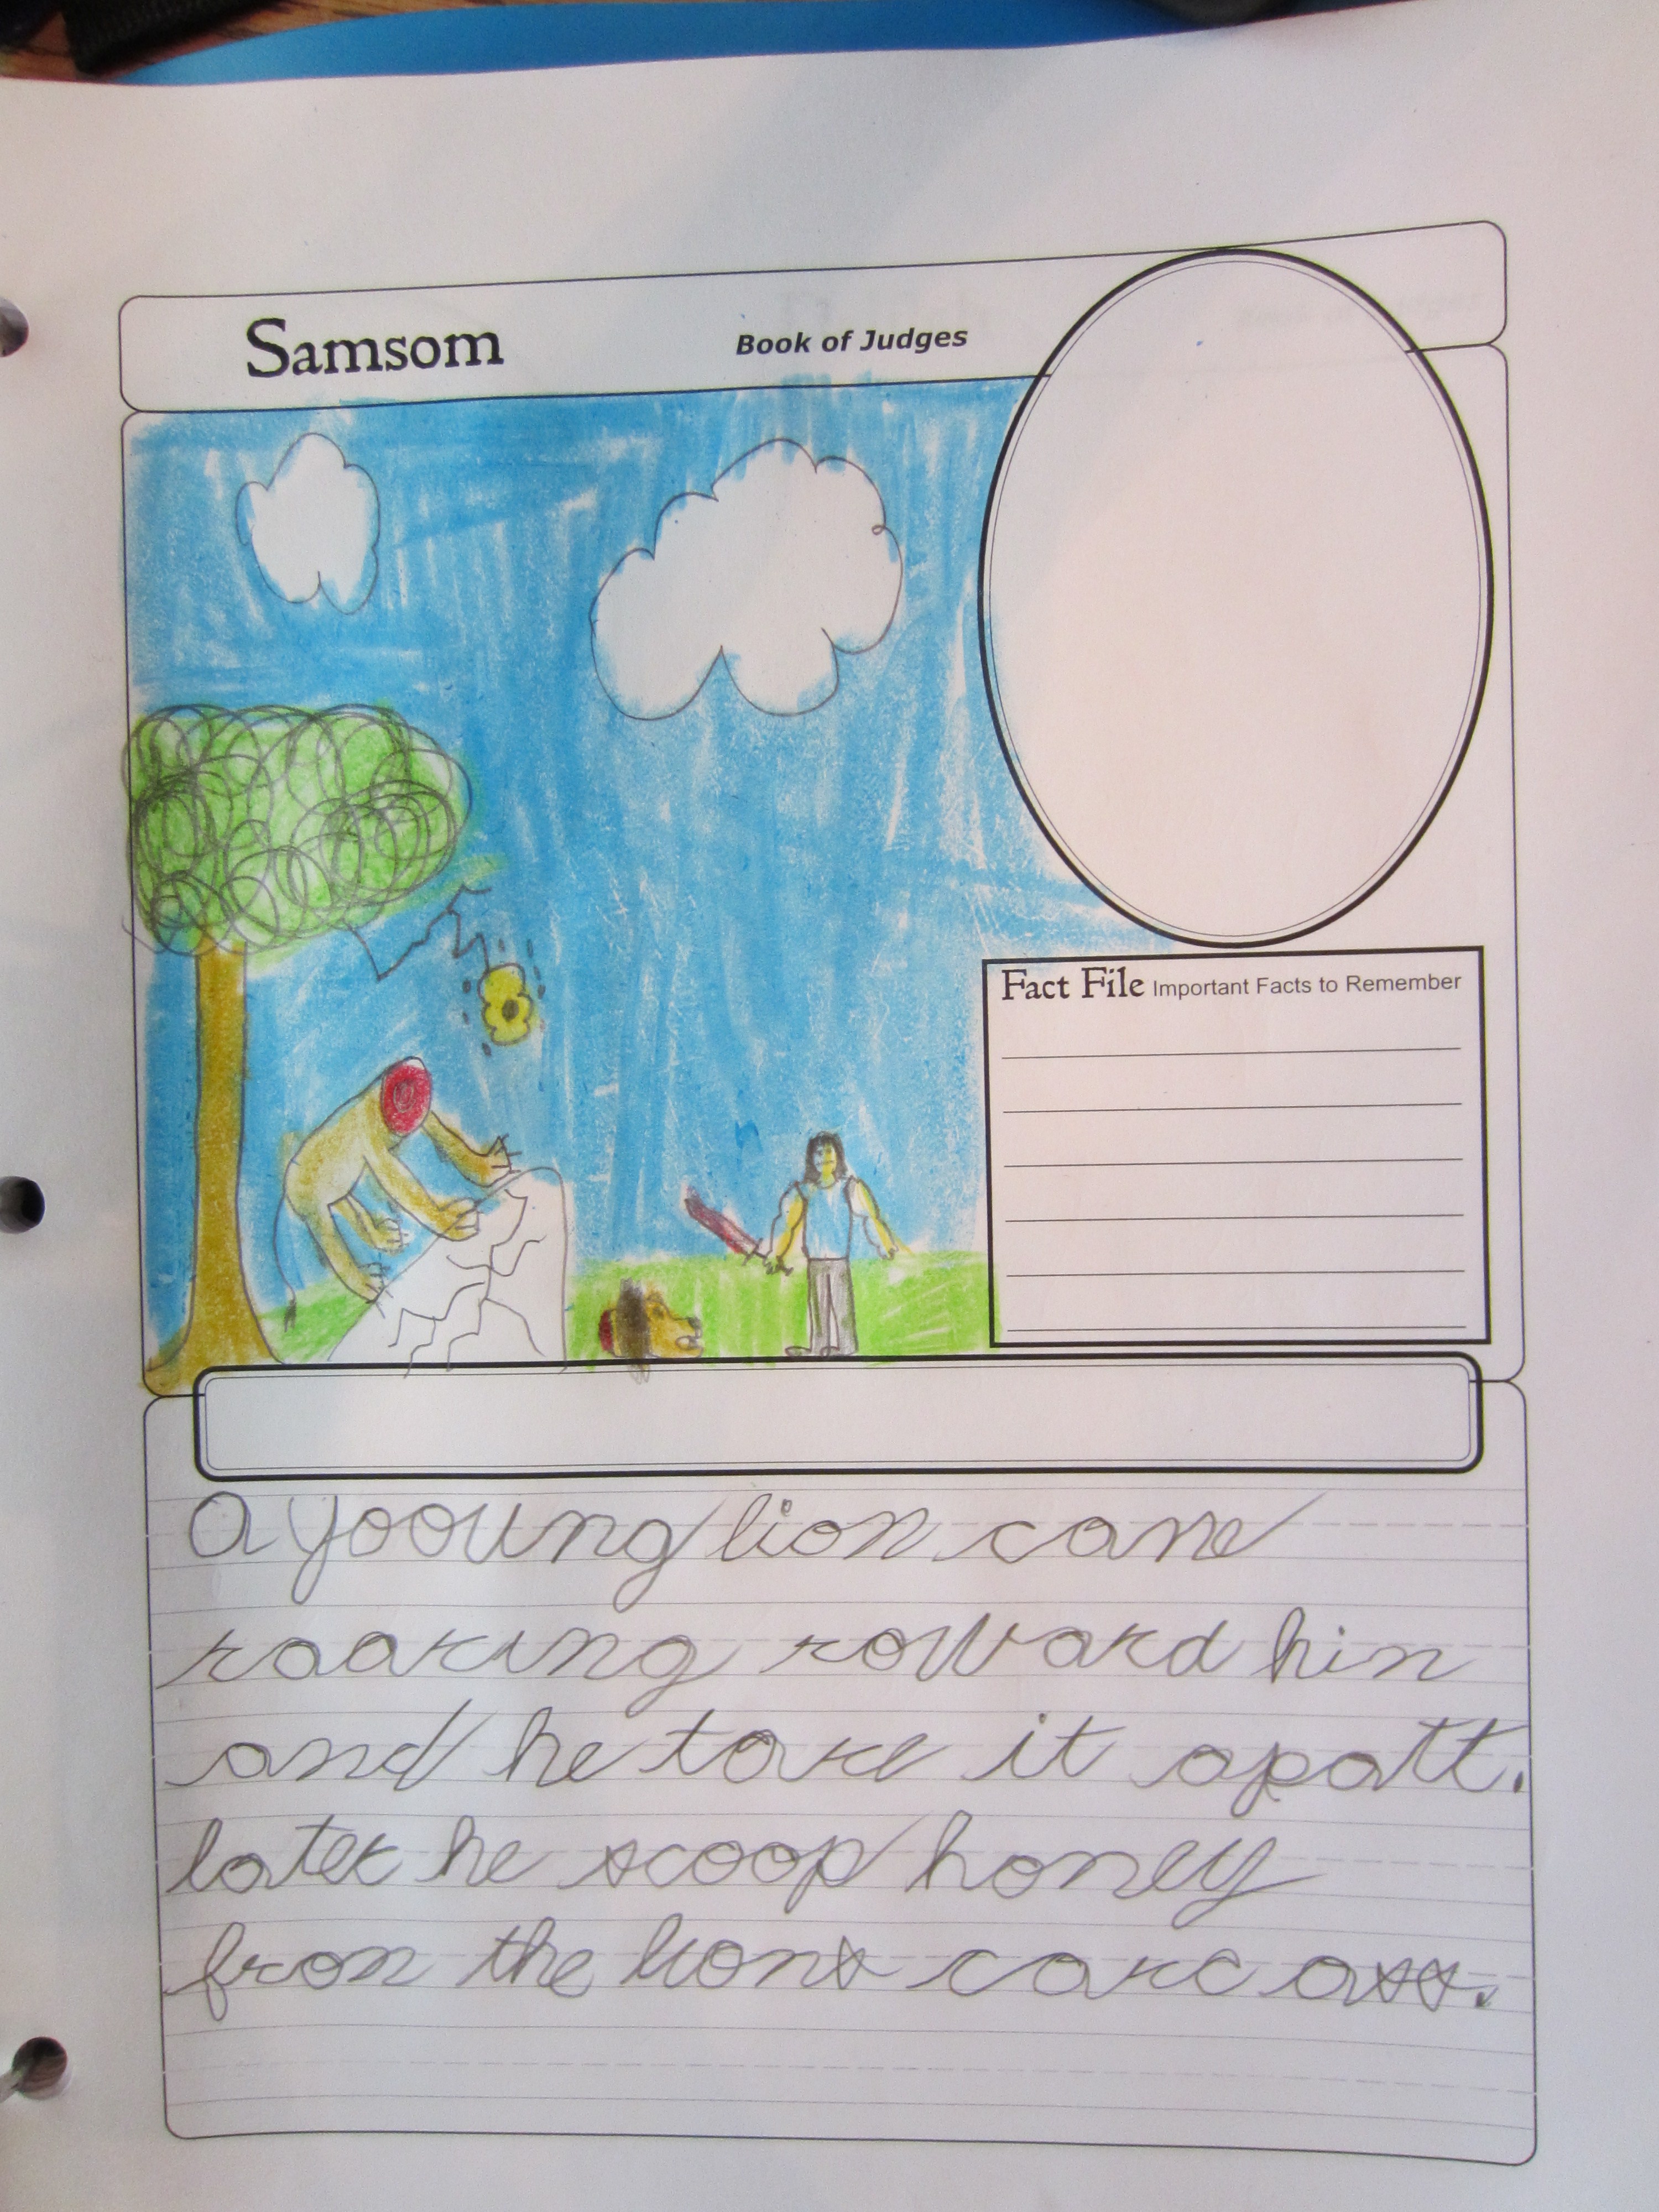 Samsom Book of Judges
Fact File Important Facts to Remember
a yooung lion came
roaring roward hin
and he tore it apatt.
later he scoop honey
fron the lions carcass.